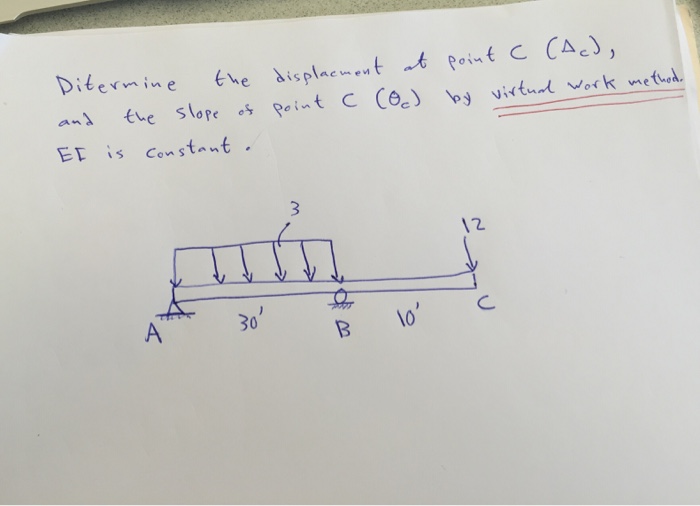 Ditermine the displacment at point C (Δc),
and the slope of point C (θc) by virtual work method.
EI is constant.
3
12
A
30'
B
10'
C